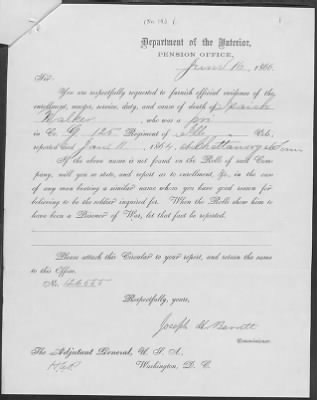 Department of the Interior,
PENSION OFFICE,
June 16, 1866.
Sir:
You are respectfully requested to furnish official evidence of the
enrollment, muster, service, duty, and cause of death of Isaiah
Walker, who was a pri
in Co. G, 125 Regiment of Ills Vols.
reported Jan'y 11, 1864, at Chattanooga Tenn
If the above name is not found on the Rolls of said Company,
will you so state, and report as to enrollment, &c., in the case
of any man bearing a similar name whom you have good reason for
believing to be the soldier inquired for. When the Rolls show him to
have been a Prisoner of War, let that fact be reported.
Please attach this Circular to your report, and return the same
to this Office.
No.
Respectfully, yours,
Joseph H. Barrett
Commissioner.
The Adjutant General, U. S. A.
Washington, D. C.